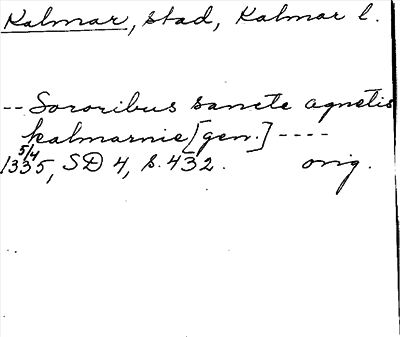 Kalmar, stad, Kalmar l.
-- Sororibus sancte agnetis
kalmarnie [gen.] ----
5/4
1335, SD 4, s. 432. orig.